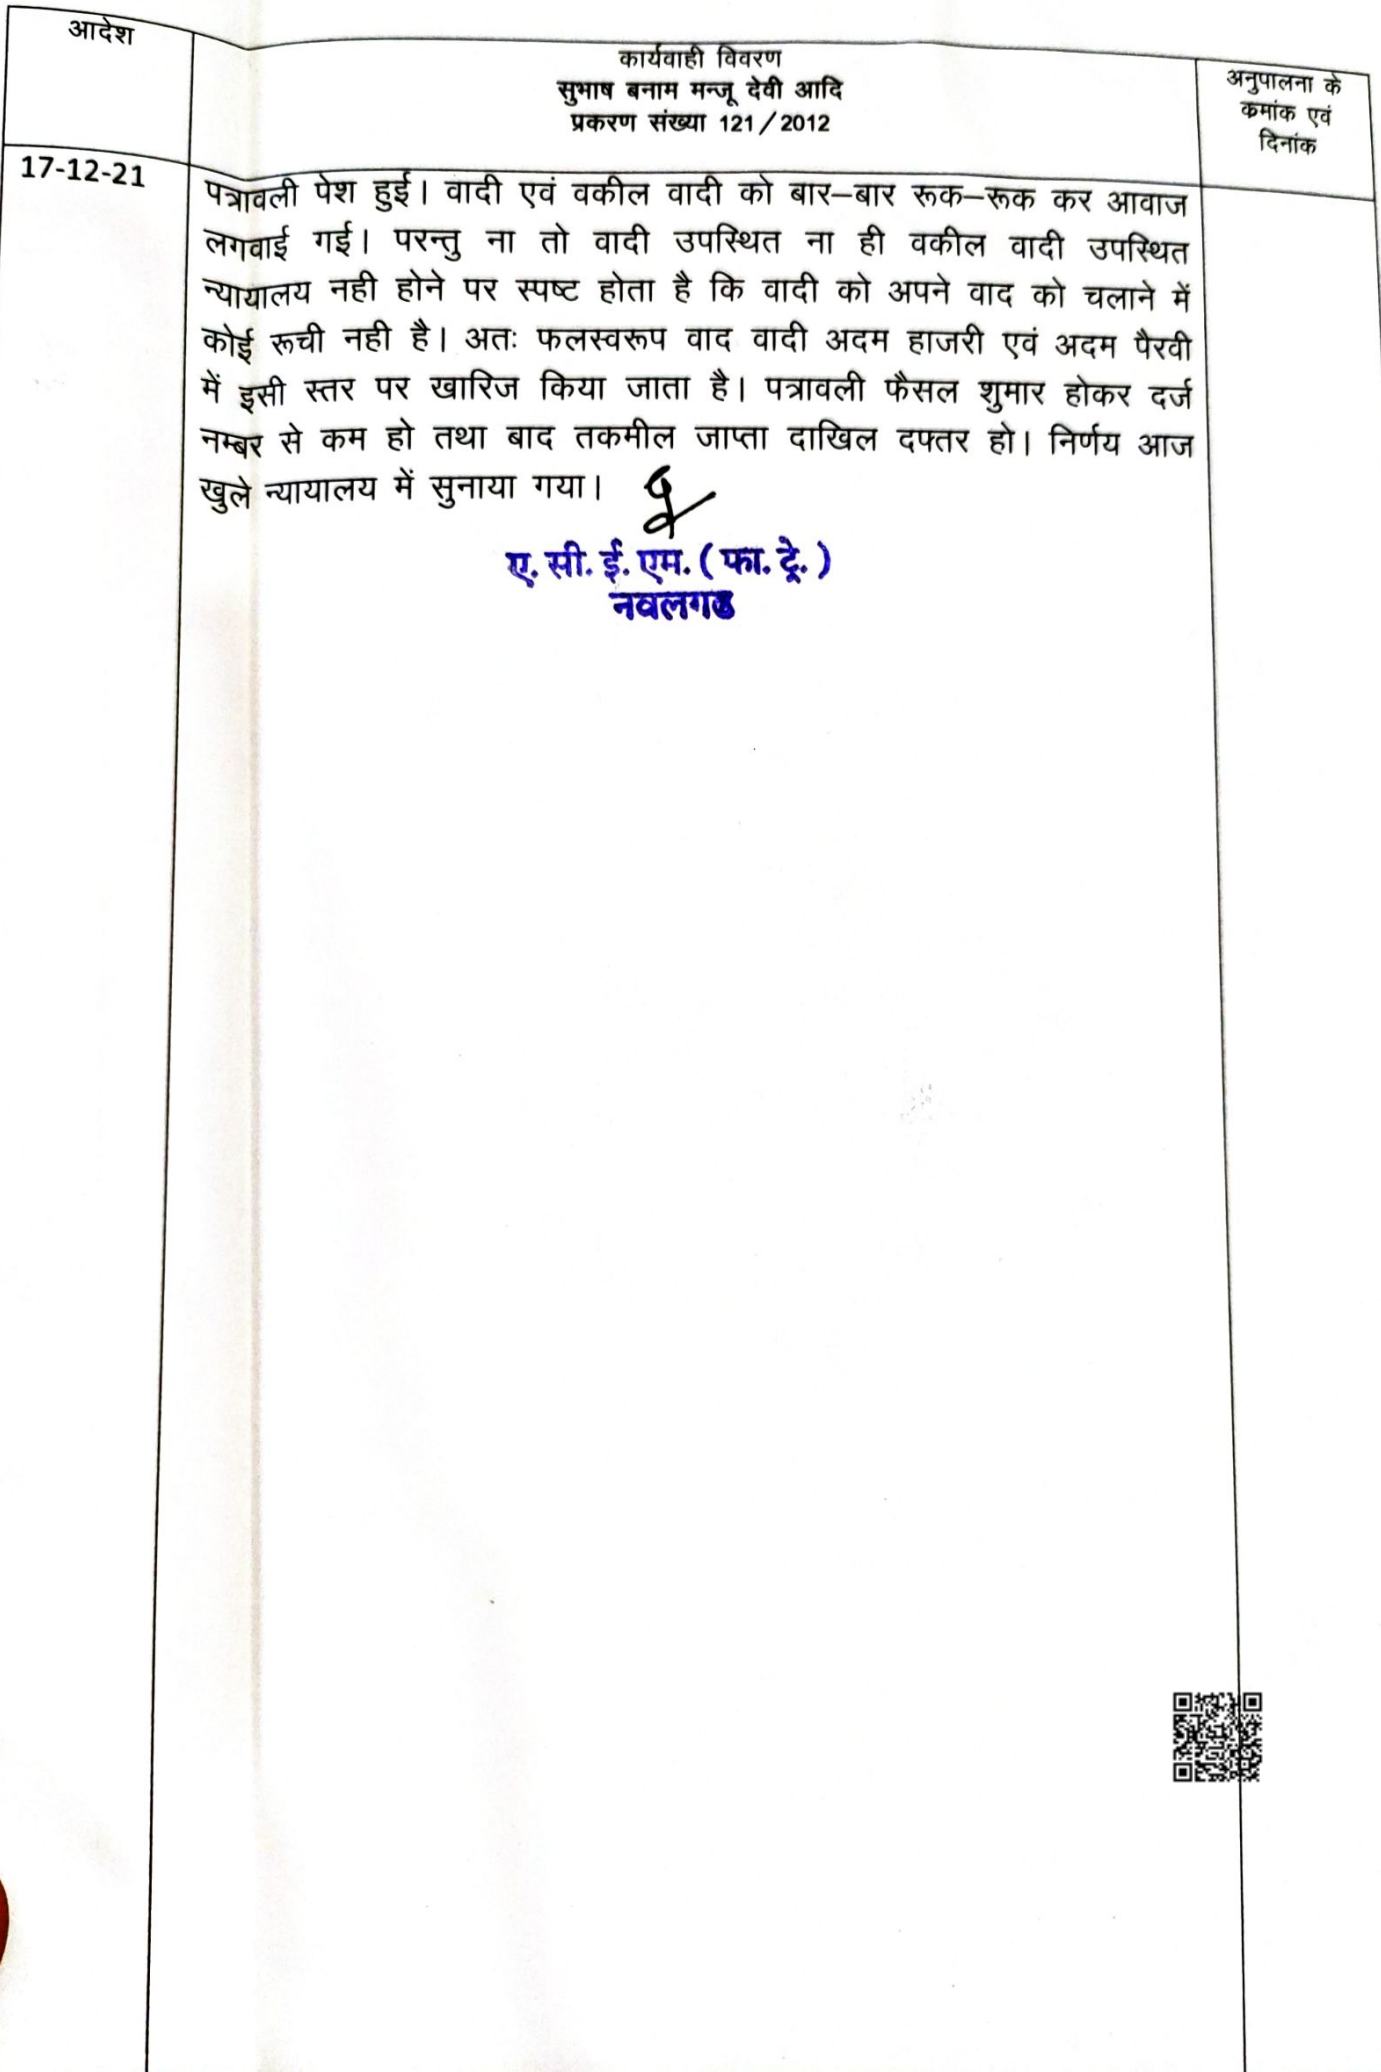 आदेश
कार्यवाही विवरण
सुभाष बनाम मन्जू देवी आदि
प्रकरण संख्या 121/2012
अनुपालना के
कमांक एवं
दिनांक
17-12-21
पत्रावली पेश हुई। वादी एवं वकील वादी को बार–बार रूक–रूक कर आवाज
लगवाई गई। परन्तु ना तो वादी उपस्थित ना ही वकील वादी उपस्थित
न्यायालय नही होने पर स्पष्ट होता है कि वादी को अपने वाद को चलाने में
कोई रूची नही है। अतः फलस्वरूप वाद वादी अदम हाजरी एवं अदम पैरवी
में इसी स्तर पर खारिज किया जाता है। पत्रावली फैसल शुमार होकर दर्ज
नम्बर से कम हो तथा बाद तकमील जाप्ता दाखिल दफ्तर हो। निर्णय आज
खुले न्यायालय में सुनाया गया।
ए. सी. ई. एम. ( फा. ट्रे. )
नवलगढ